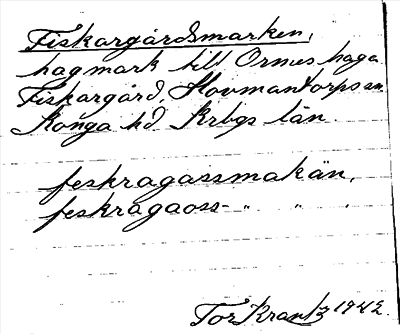 Fiskargårdsmarken,
hagmark till Ormeshaga
Fiskargård, Hovmantorps sn.
Konga hd. Krbgs län.
feskragassmakän,
feskragaoss- " " .
Tor Krantz 1942